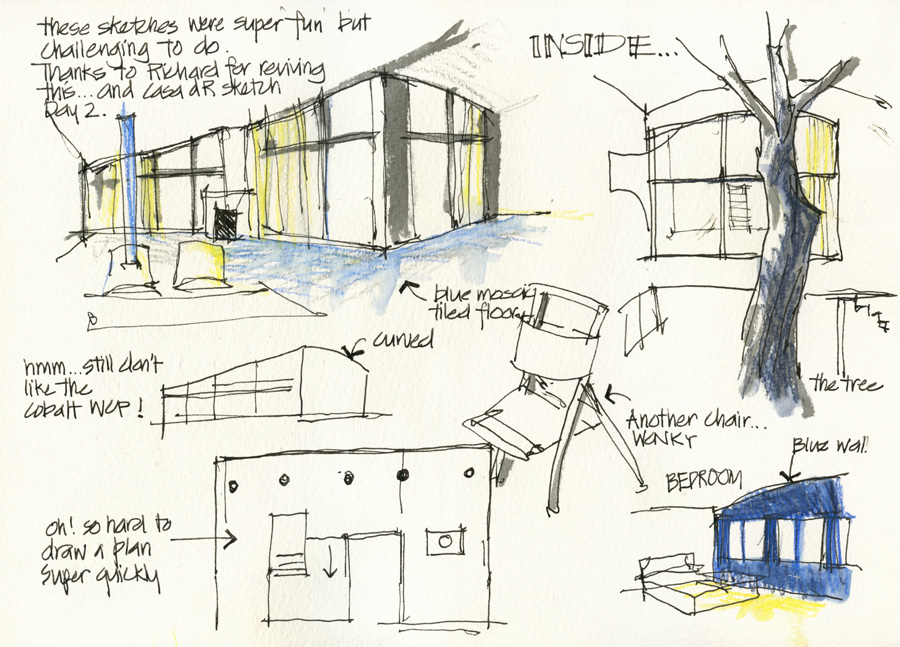 these sketches were super "fun" but
challenging to do.
Thanks to Richard for reviving
this...and casa dR sketch
Day 2.
INSIDE...
blue mosaic
tiled floor
curved
hmm...still don't
like the
cobalt WCP!
the tree
Another chair...
WONKY
Blue wall
BEDROOM
oh! so hard to
draw a plan
super quickly